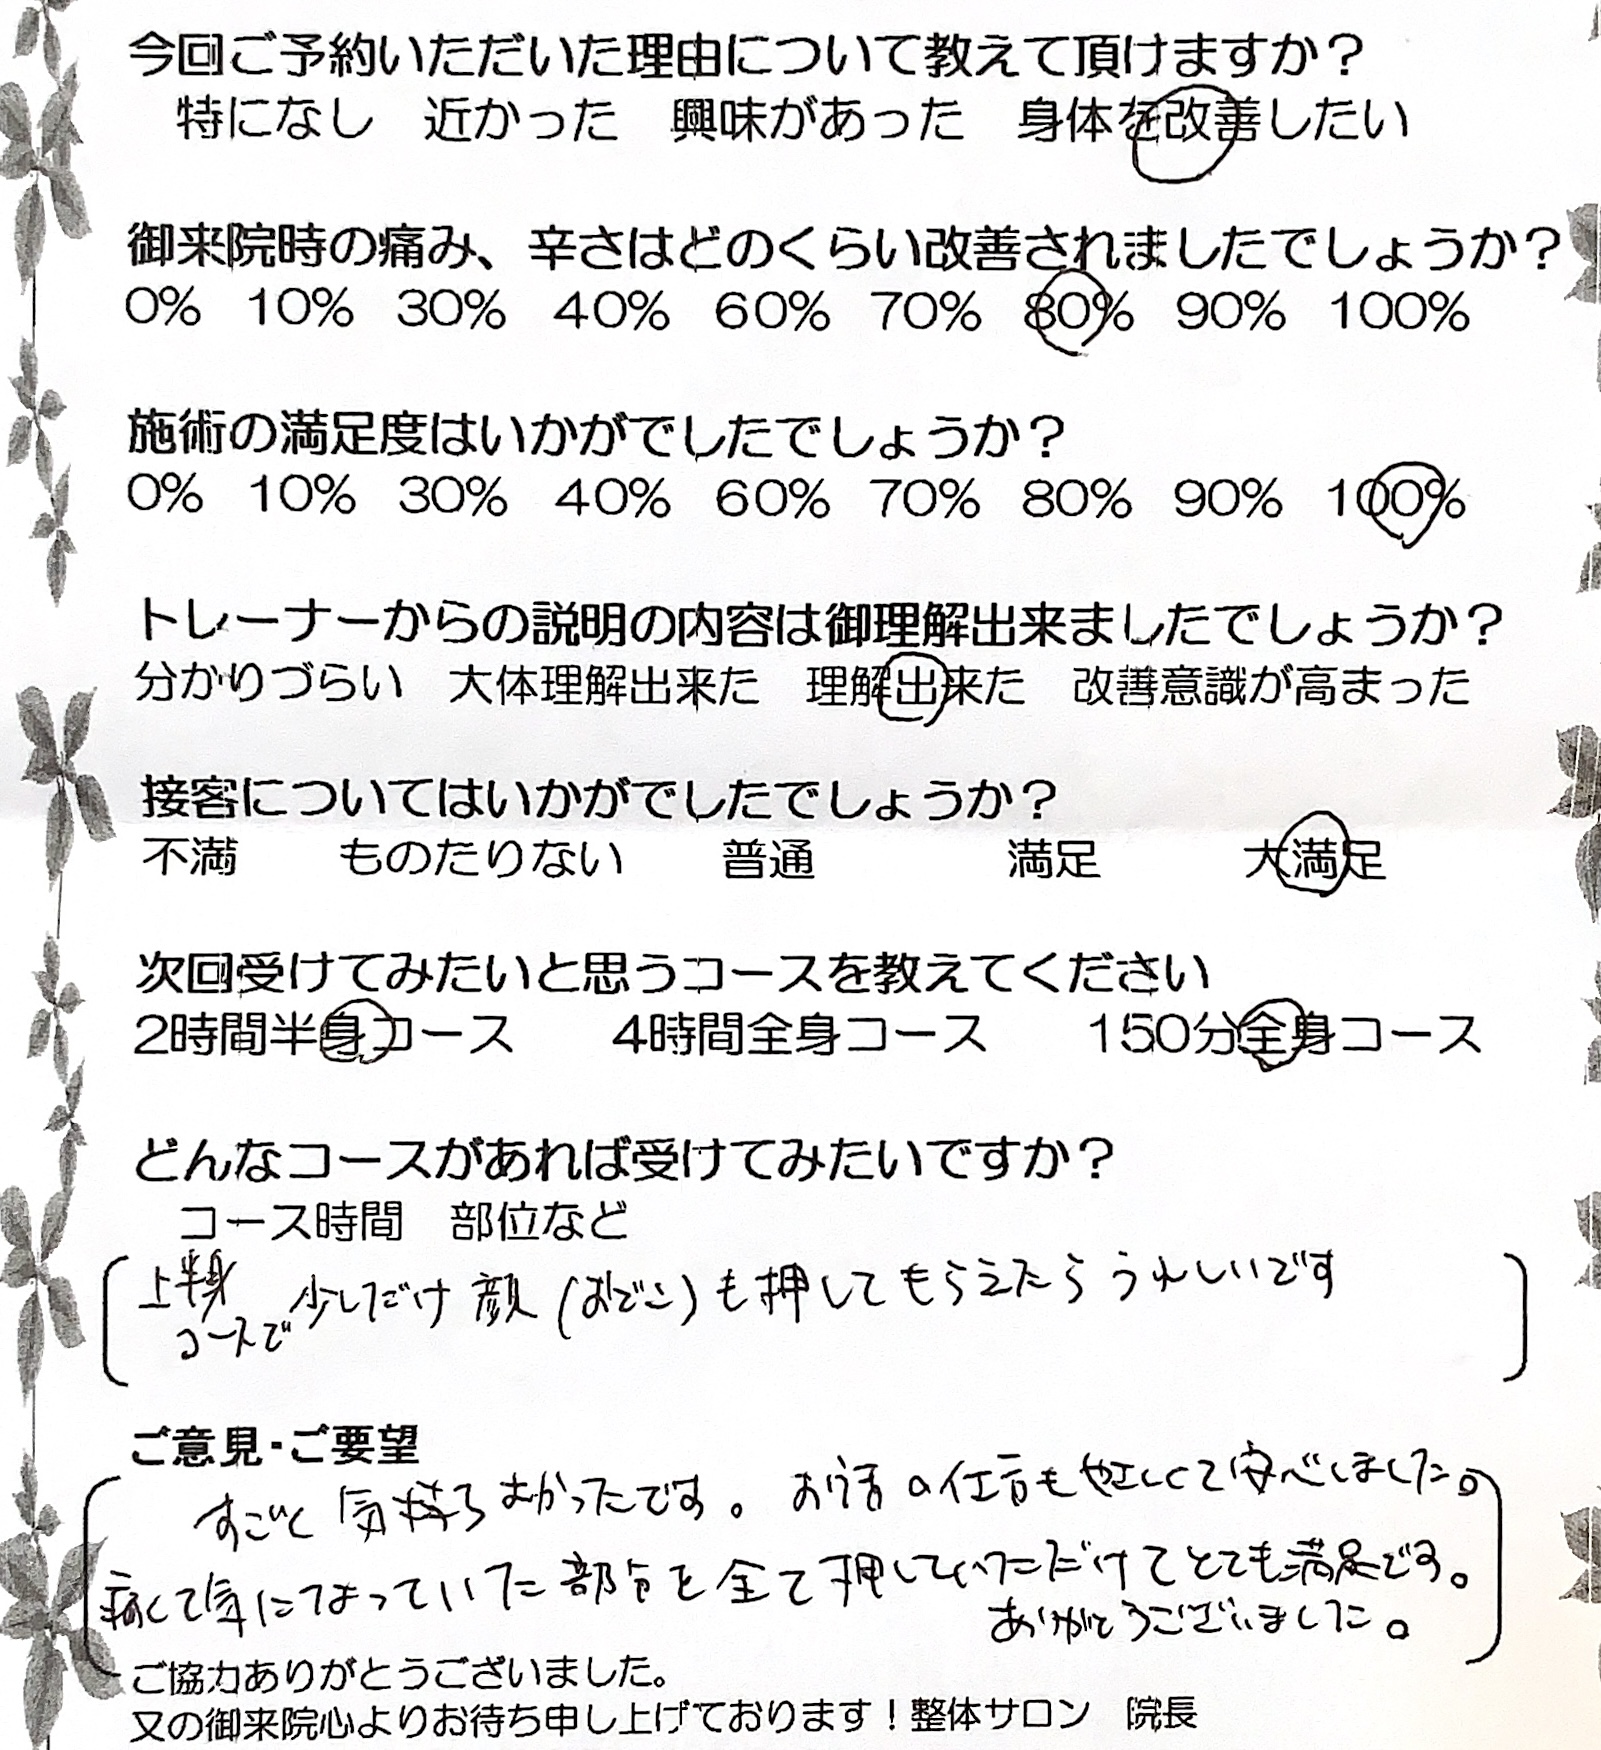 今回ご予約いただいた理由について教えて頂けますか？
特になし　近かった　興味があった　身体を改善したい
御来院時の痛み、辛さはどのくらい改善されましたでしょうか？
0%　10%　30%　40%　60%　70%　80%　90%　100%
施術の満足度はいかがでしたでしょうか？
0%　10%　30%　40%　60%　70%　80%　90%　100%
トレーナーからの説明の内容は御理解出来ましたでしょうか？
分かりづらい　大体理解出来た　理解出来た　改善意識が高まった
接客についてはいかがでしたでしょうか？
不満　ものたりない　普通　満足　大満足
次回受けてみたいと思うコースを教えてください
2時間半身コース　4時間全身コース　150分全身コース
どんなコースがあれば受けてみたいですか？
コース時間　部位など
上半身コースで少しだけ顔（おでこ）も押してもらえたらうれしいです
ご意見・ご要望
すごく気持ちよかったです。お話の仕方も優しくて安心しました。
痛くて気になっていた部分を全て押していただけてとても満足です。
ありがとうございました。
ご協力ありがとうございました。
又の御来院心よりお待ち申し上げております！整体サロン　院長